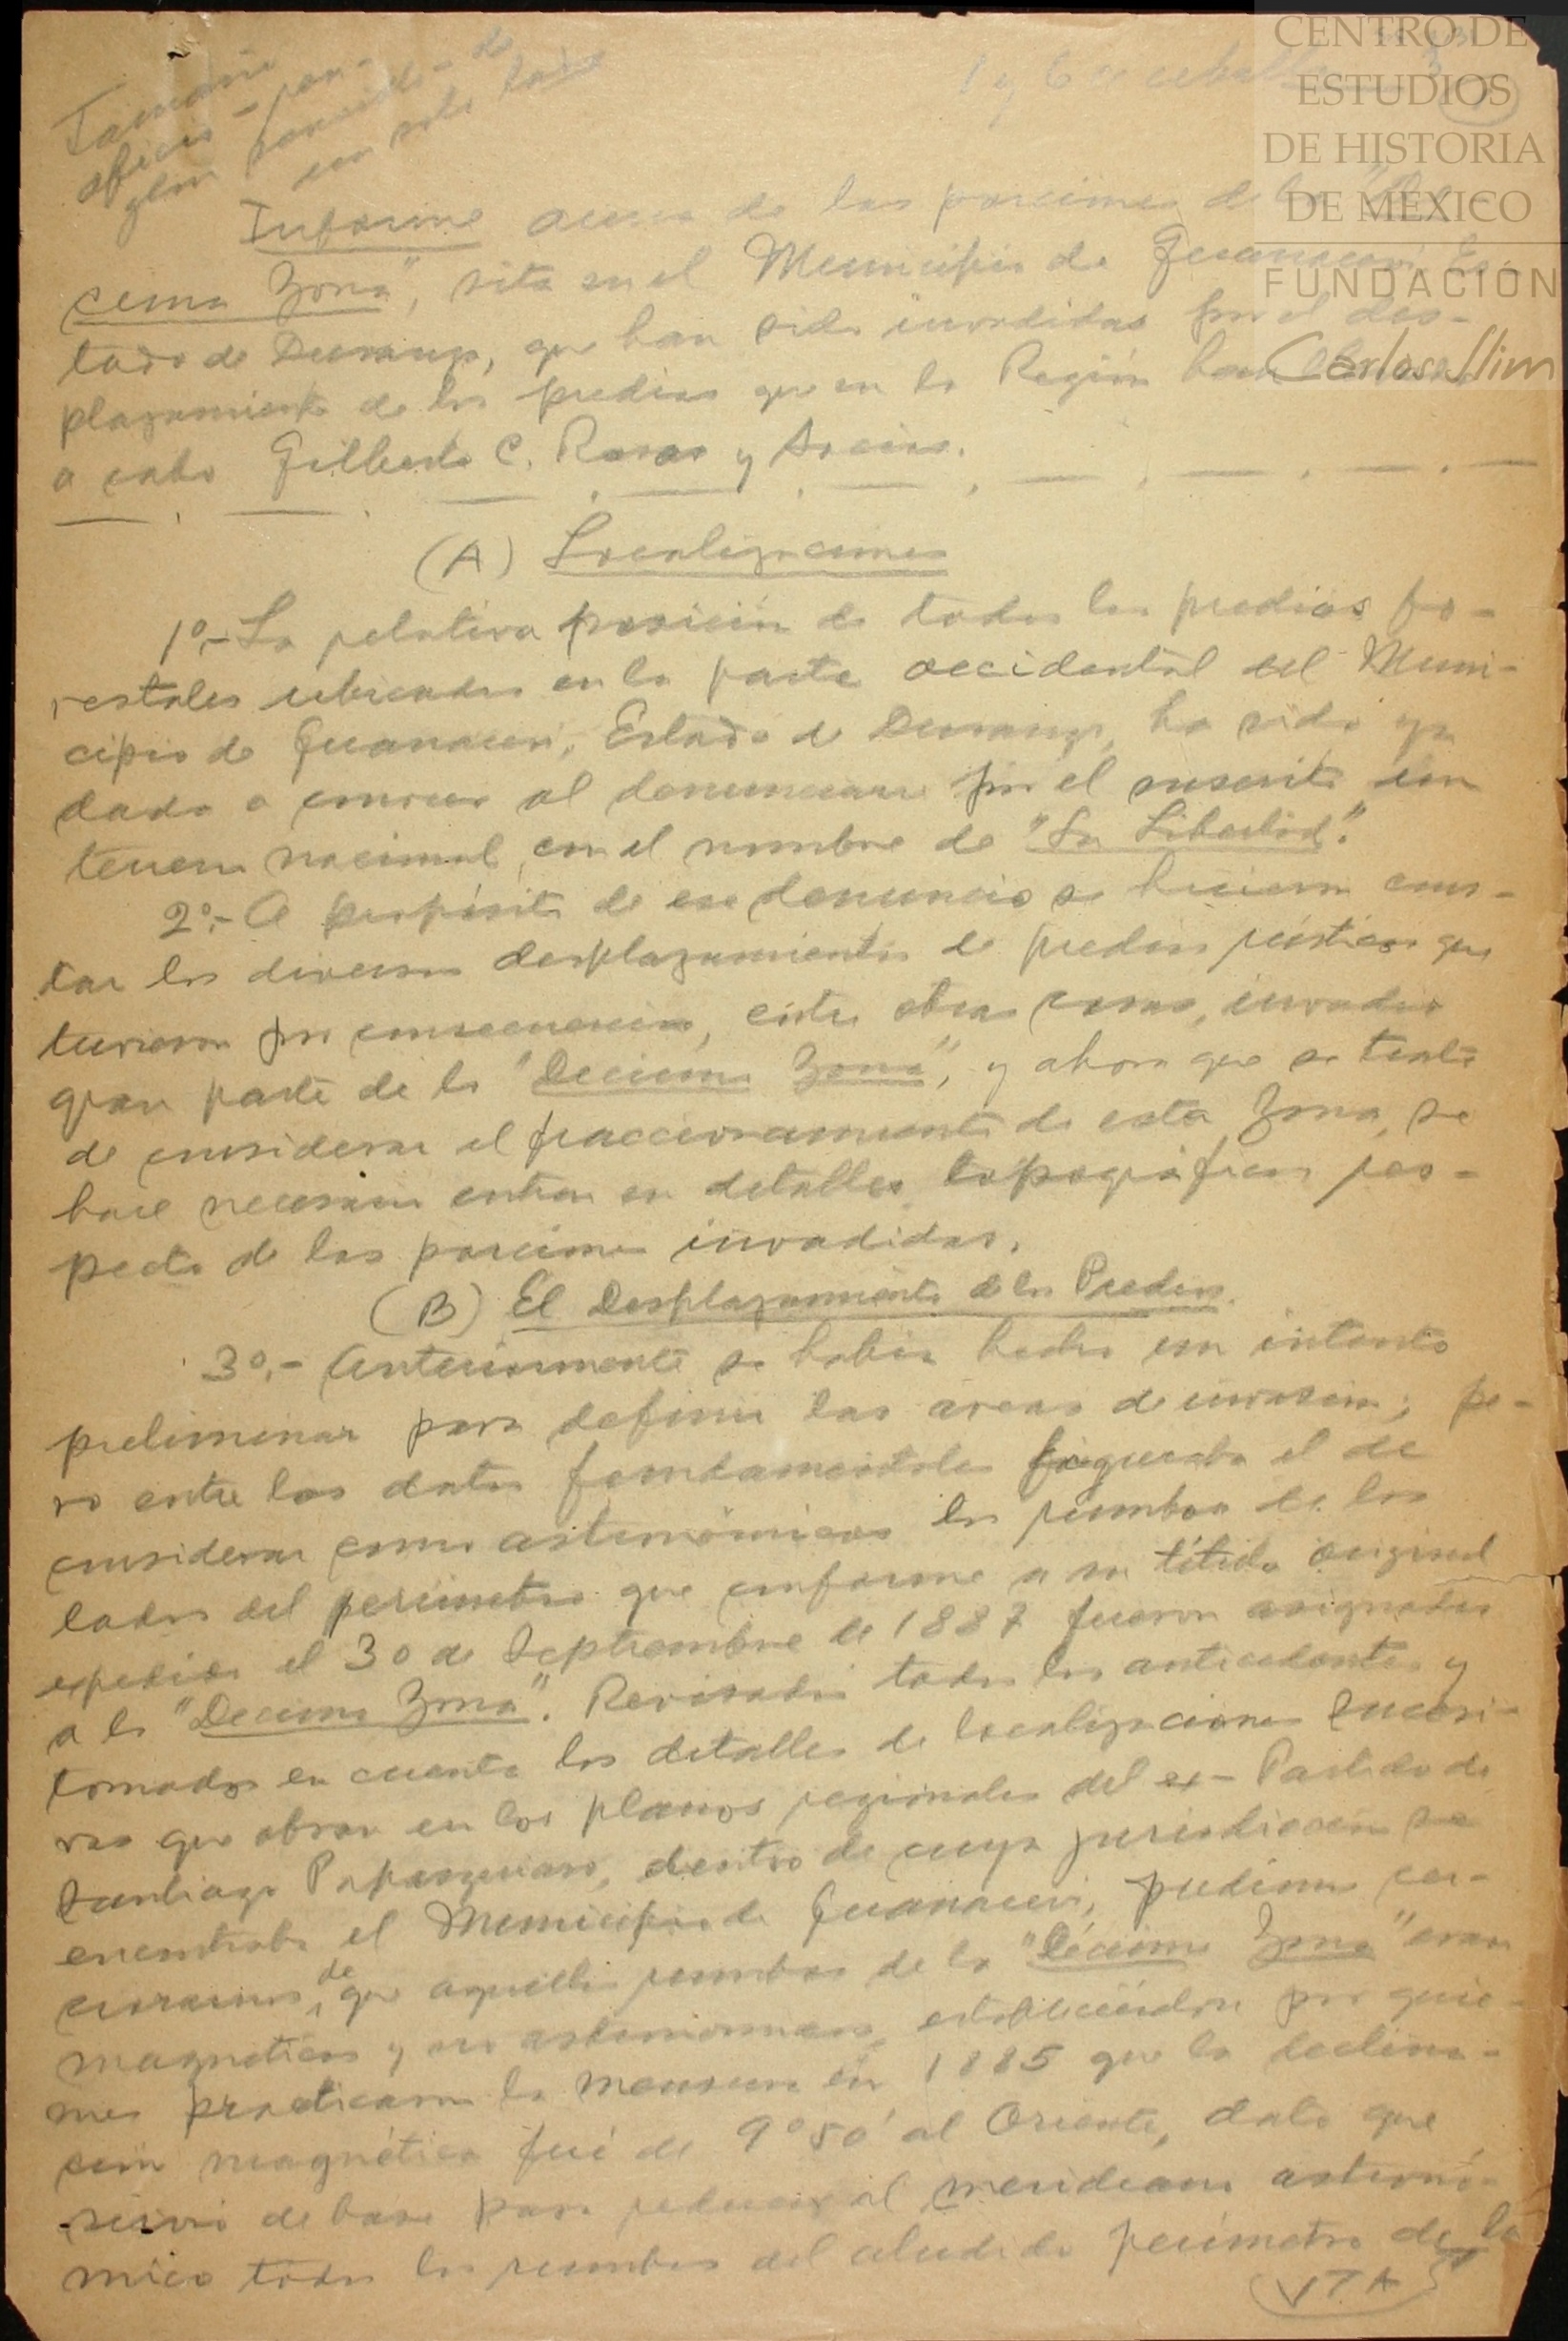 CENTRO DE
ESTUDIOS
DE HISTORIA
DE MÉXICO
FUNDACIÓN
Carlos Slim
Tamaño
oficio -
con solo
Informe acerca de las porciones de la "Dé-
cima Zona", sita en el Municipio de Guanaceví, Es-
tado de Durango, que han sido invadidas por el des-
plazamiento de los predios que en la Región han
a cabo Gilberto C. Rosas y Socios.
(A) Localizaciones
1º.- La relativa posición de todos los predios fo-
restales ubicados en la parte occidental del Muni-
cipio de Guanaceví, Estado de Durango, ha sido ya
dada a conocer al denunciarse por el suscrito un
terreno nacional, con el nombre de "La Libertad".
2º.- A propósito de ese denuncio se hicieron cons-
tar los diversos desplazamientos de predios rústicos que
tuvieron por consecuencia, entre otras cosas, invadir
gran parte de la "Décima Zona", y ahora que se trata
de considerar el fraccionamiento de esta Zona, se
hace necesario entrar en detalles topográficos res-
pecto de las porciones invadidas.
(B) El Desplazamiento de los Predios.
3º.- Anteriormente se había hecho un intento
preliminar para definir las áreas de invasión; pe-
ro entre los datos fundamentales figuraba el de
considerar como astronómicos los rumbos de los
lados del perímetro que conforme a su título original
expedido el 30 de Septiembre de 1887 fueron asignados
a la "Décima Zona". Revisados todos los antecedentes y
tomados en cuenta los detalles de localizaciones sucesi-
vas que obran en los planos regionales del ex-Partido de
Santiago Papasquiaro, dentro de cuya jurisdicción se
encontraba el Municipio de Guanaceví, pudimos cer-
ciorarnos, de que aquellos rumbos de la "Décima Zona" eran
magnéticos y no astronómicos, estableciéndose por quie-
nes practicaron la mensura en 1885 que la declina-
ción magnética fué de 9º50' al Oriente, dato que
sirvió de base para reducir al meridiano astronó-
mico todos los rumbos del aludido perímetro de la
VTA